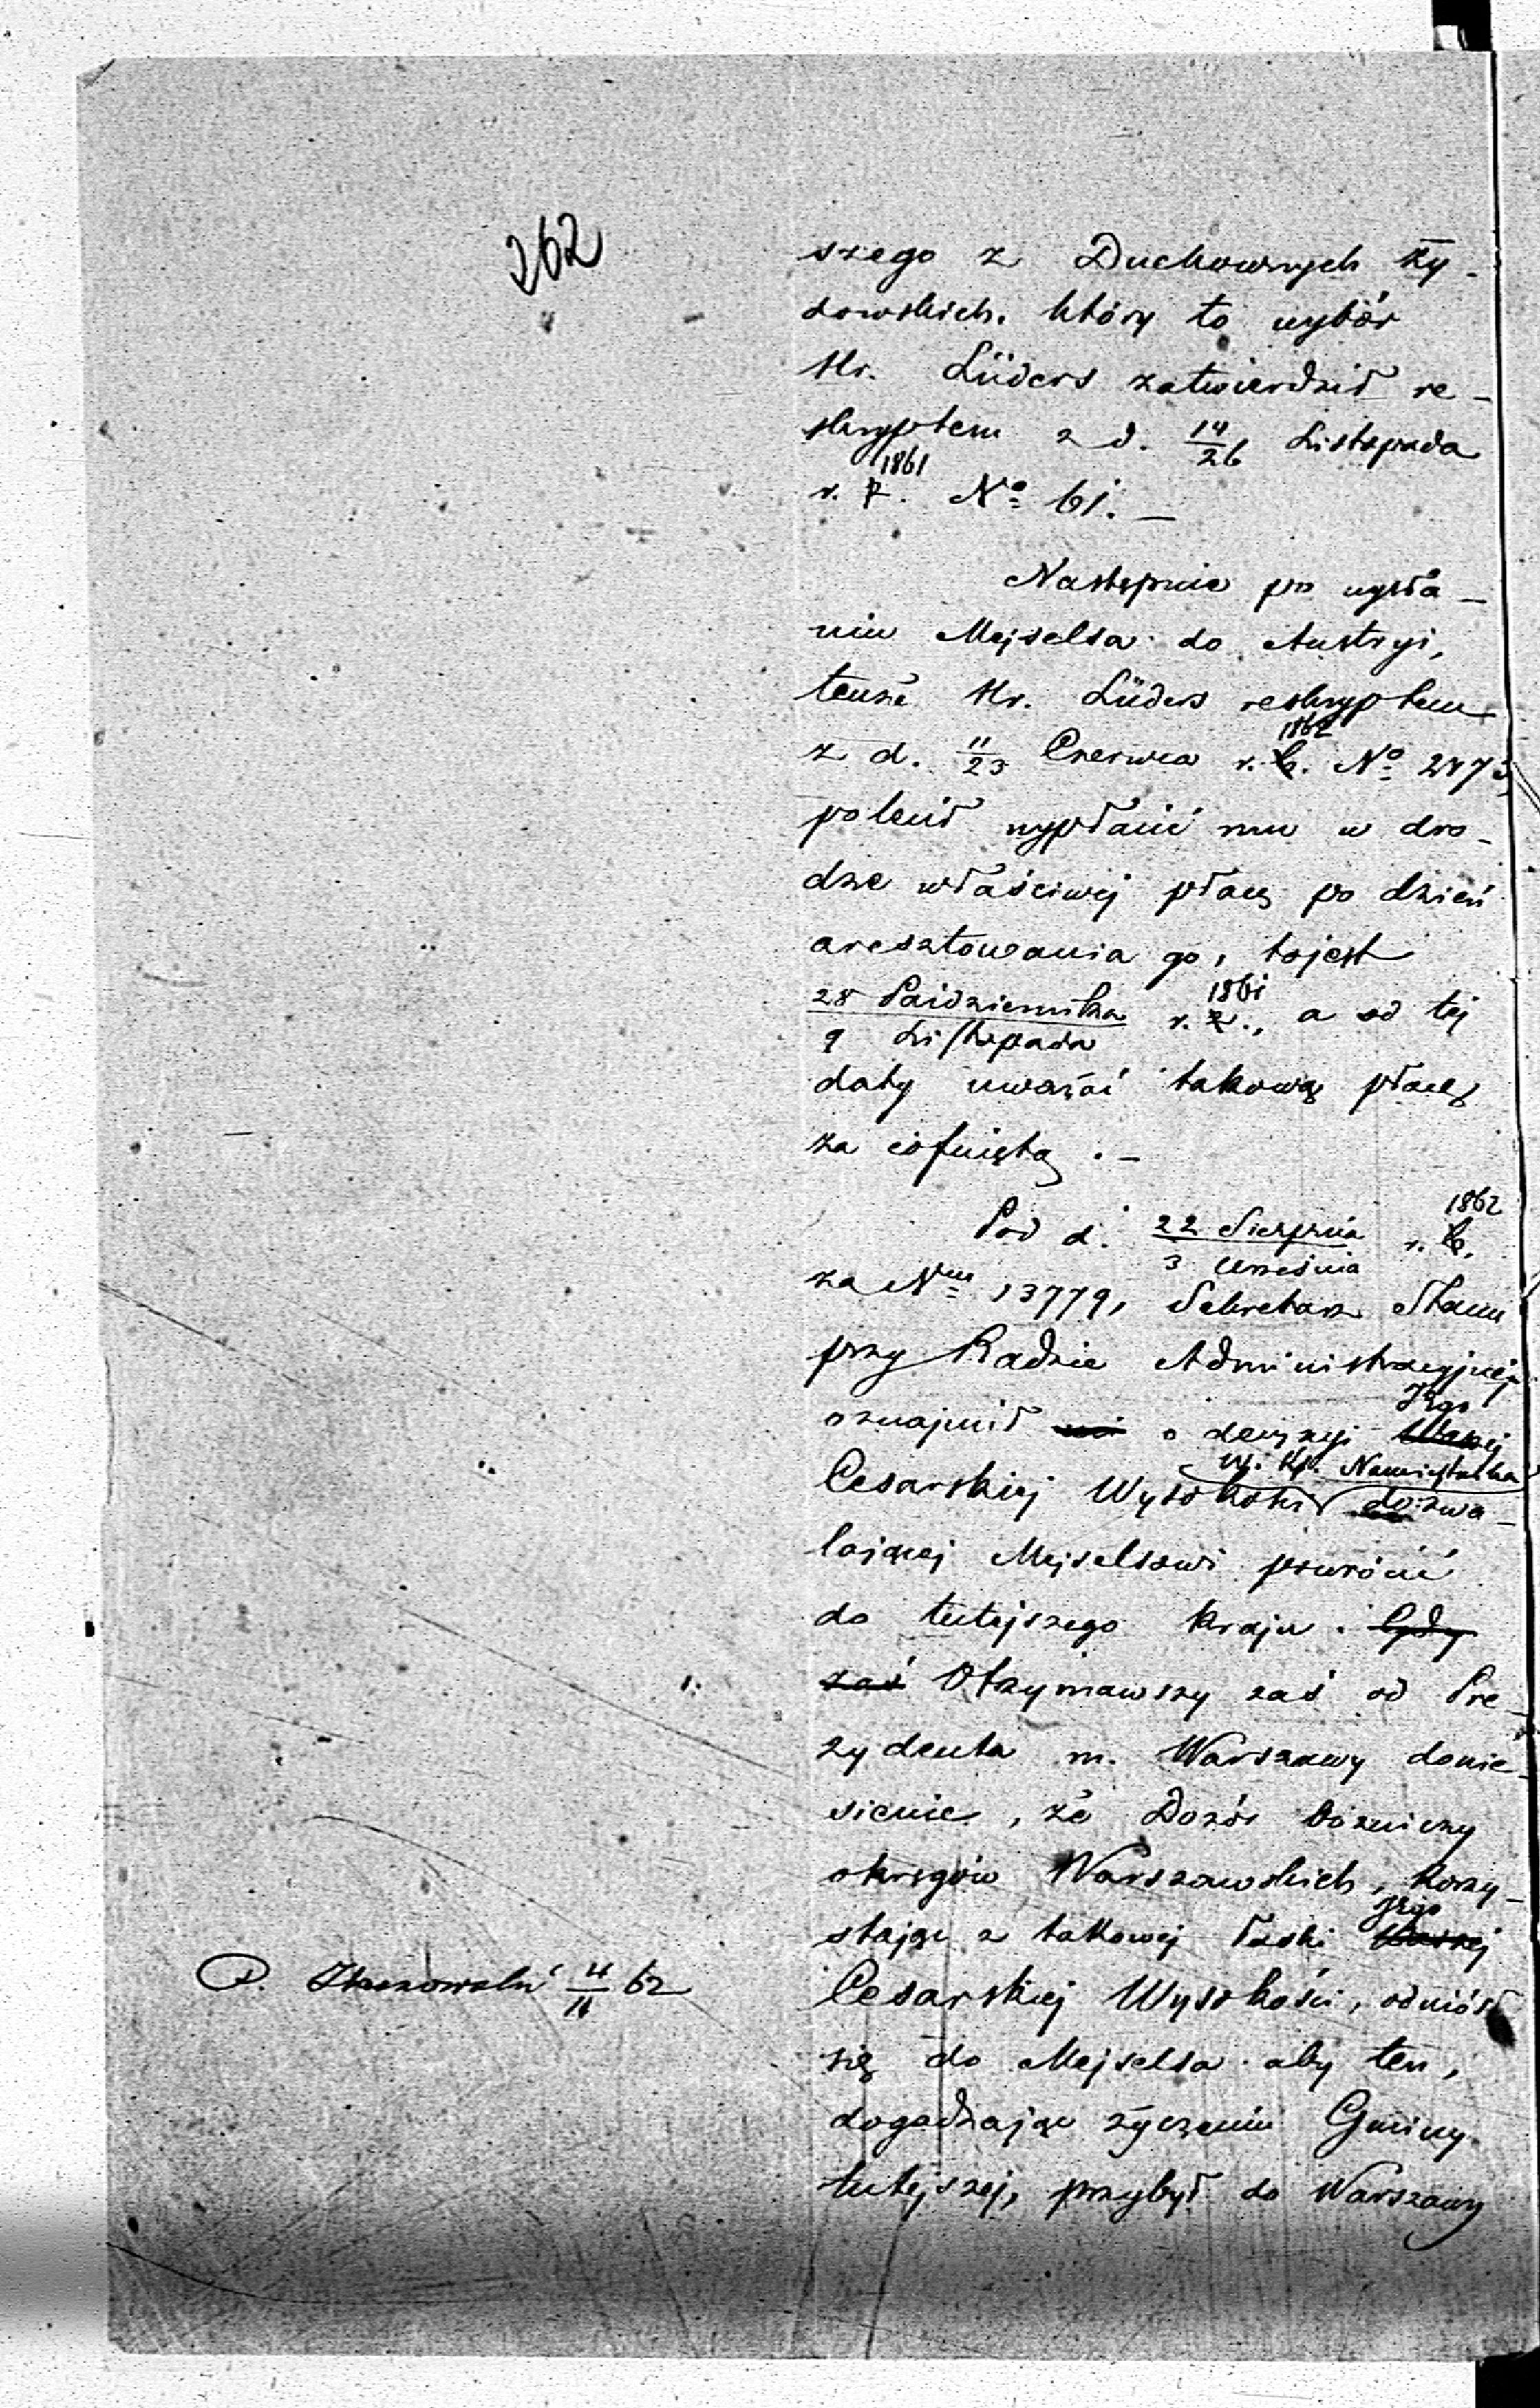 262
szego z Duchownych Ży-
dowskich. który to wybór
Hr. Lüders zatwierdził re-
skryptem z d. 14/26 Listopada
1861
r. z. No 61. —
Następnie po wysła-
niu Mejselsa do Austryi,
tenże Hr. Lüders reskryptem
1862
z d. 11/23 Czerwca r. b. No
polecił wypłacić mu w dro-
dze właściwej płacę po dzień
aresztowania go, tojest
1861
28 Października / 9 Listopada r. z., a od tej
daty uważać takową płacę
za cofniętą. —
1862
Pod d. 22 Sierpnia / 3 Września r. b.
za Nem 13779, Sekretarz Stanu
przy Radzie Administracyjnej
Jego
oznajmił mi o decyzyi Waszej
W. Ks. Namiestnika
Cesarskiej Wysokości dozwa-
lającej Mejselsowi powrócić
do tutejszego kraju. Gdy
zaś Otrzymawszy zaś od Pre-
zydenta m. Warszawy donie-
sienie, że Dozór Bóżniczy
okręgów Warszawskich, korzy-
Jego
stając z takowej łaski Waszej
Cesarskiej Wysokości, odniósł
się do Mejselsa aby ten,
dogadzając życzeniu Gminy
tutejszej, przybył do Warszawy
62